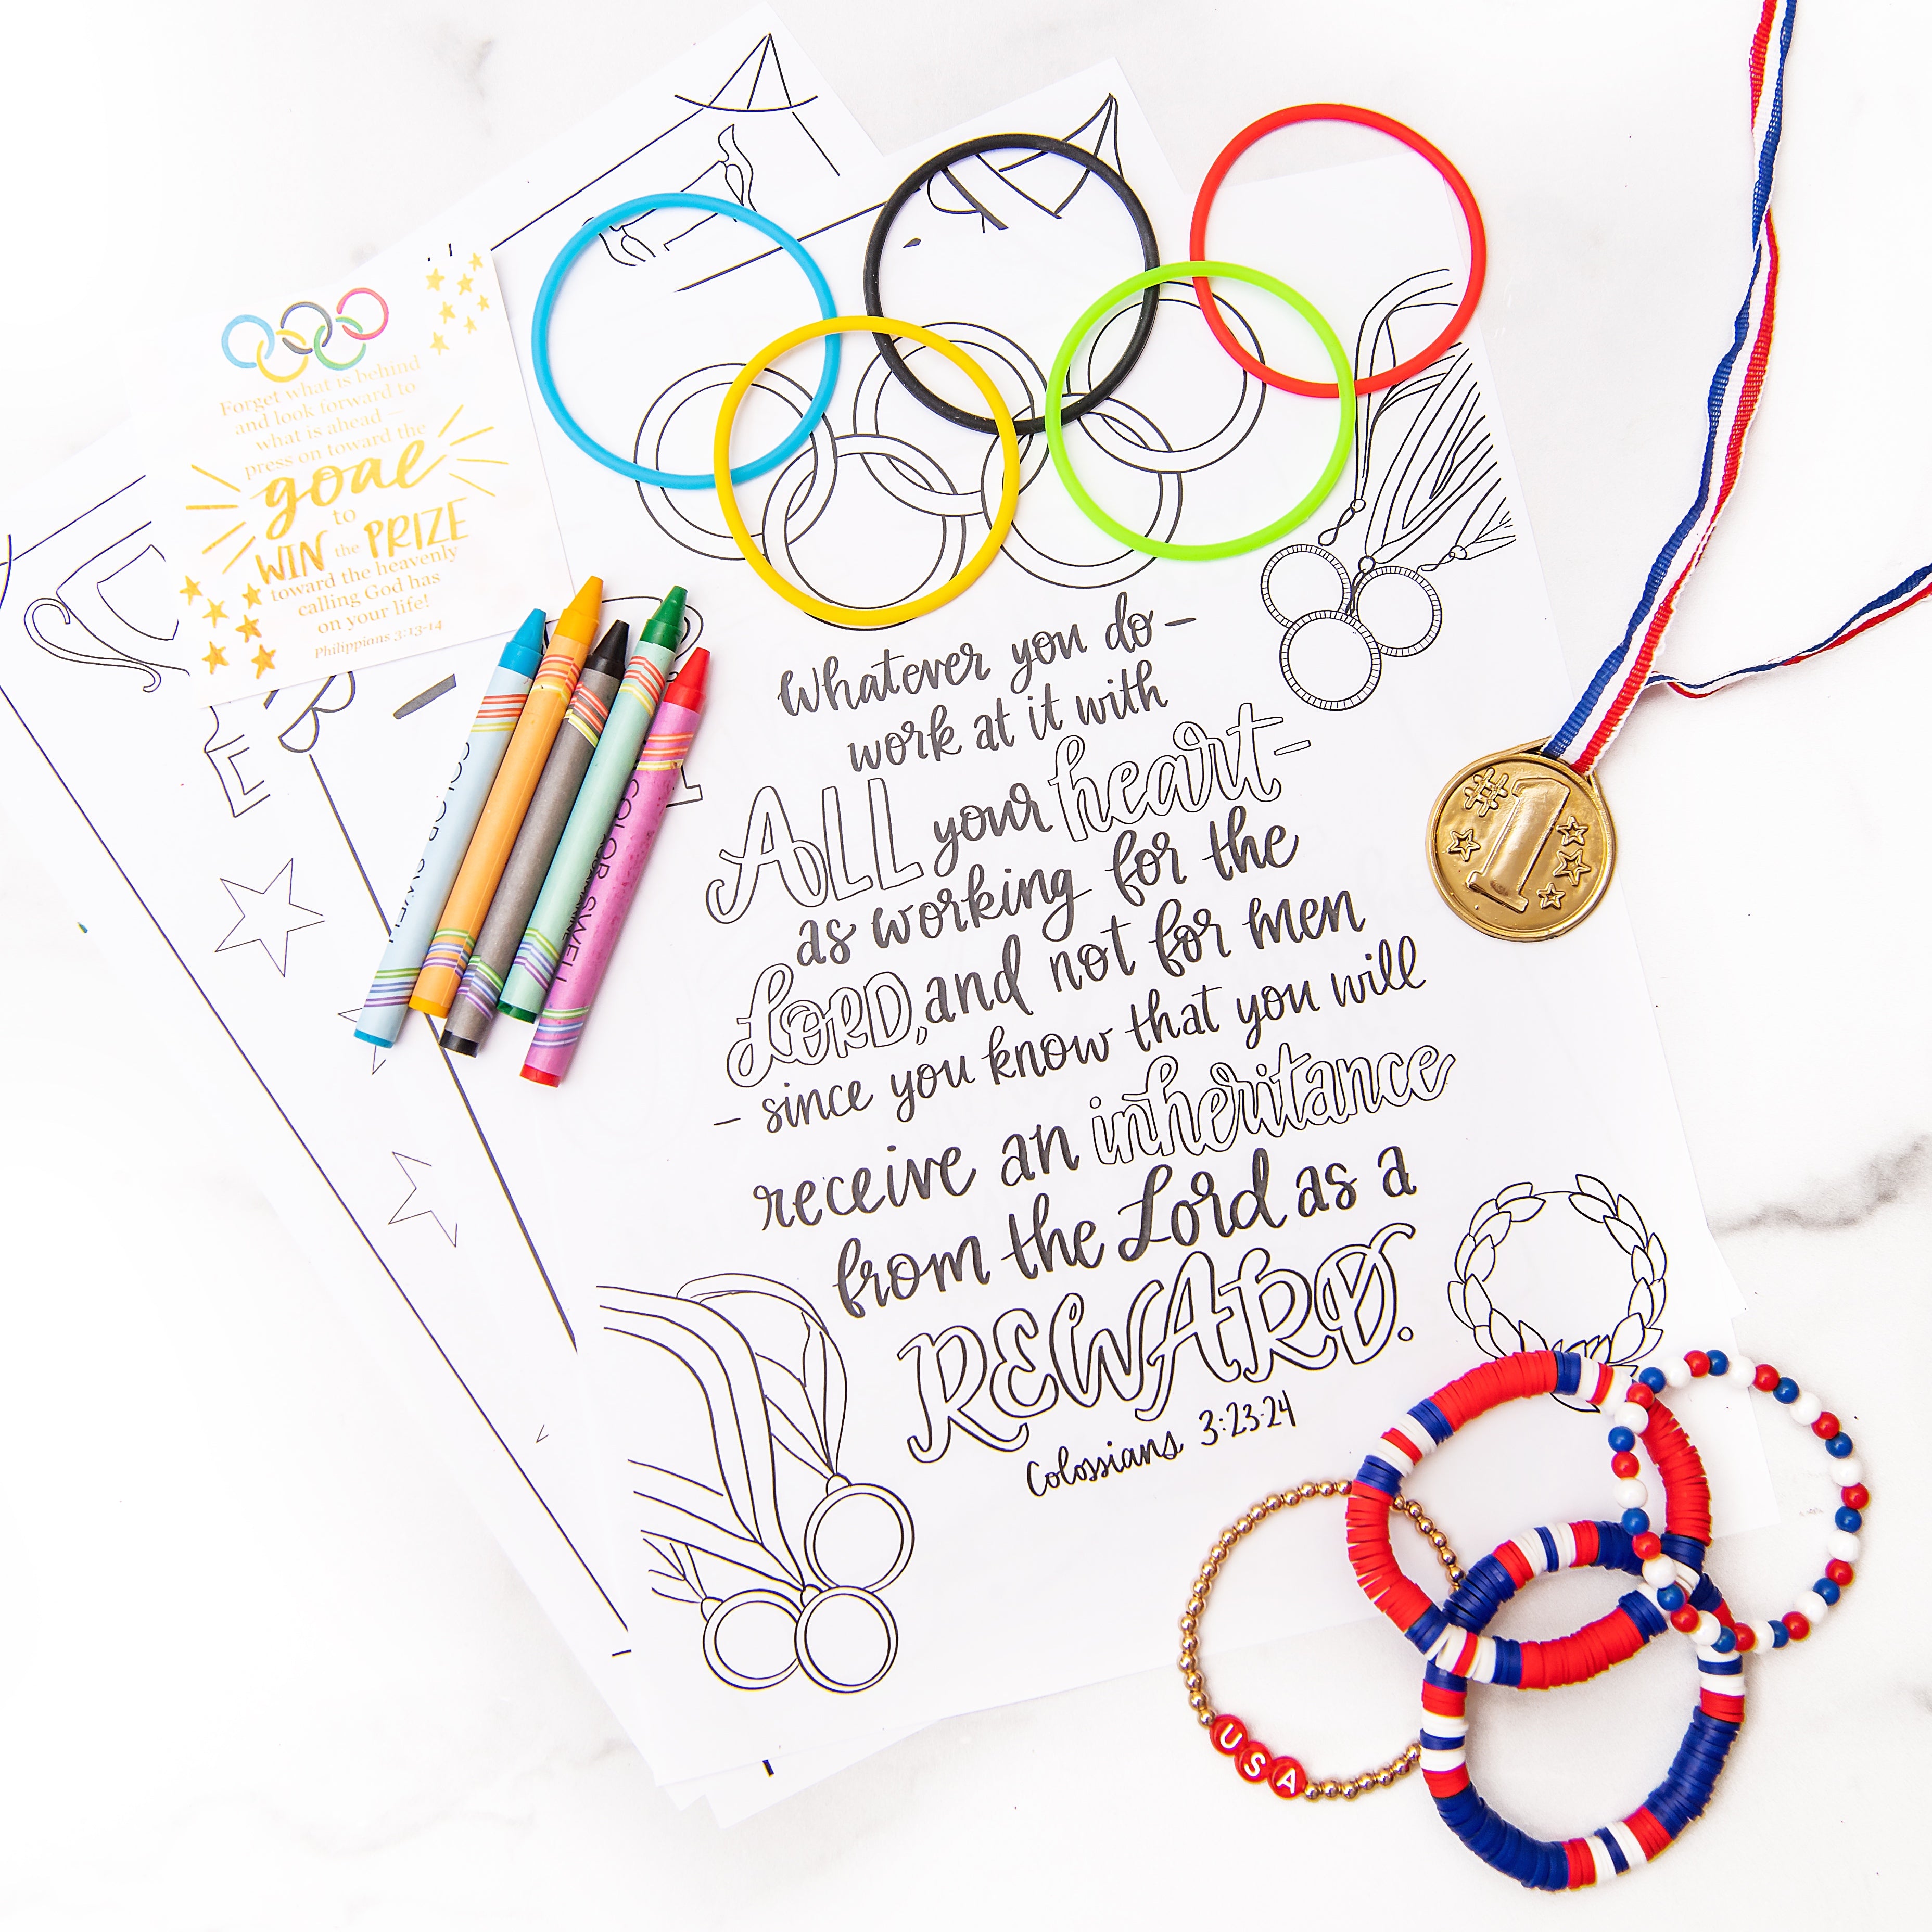 Forget what is behind
and look forward to
what is ahead —
press on toward the
goal
to
WIN the PRIZE
toward the heavenly
calling God has
on your life!
Philippians 3:13-14
Whatever you do –
work at it with
ALL your heart –
as working for the
LORD, and not for men
– since you know that you will
receive an inheritance
from the Lord as a
REWARD.
Colossians 3:23-24
COLOR SWELL
COLOR SWELL
#1
USA